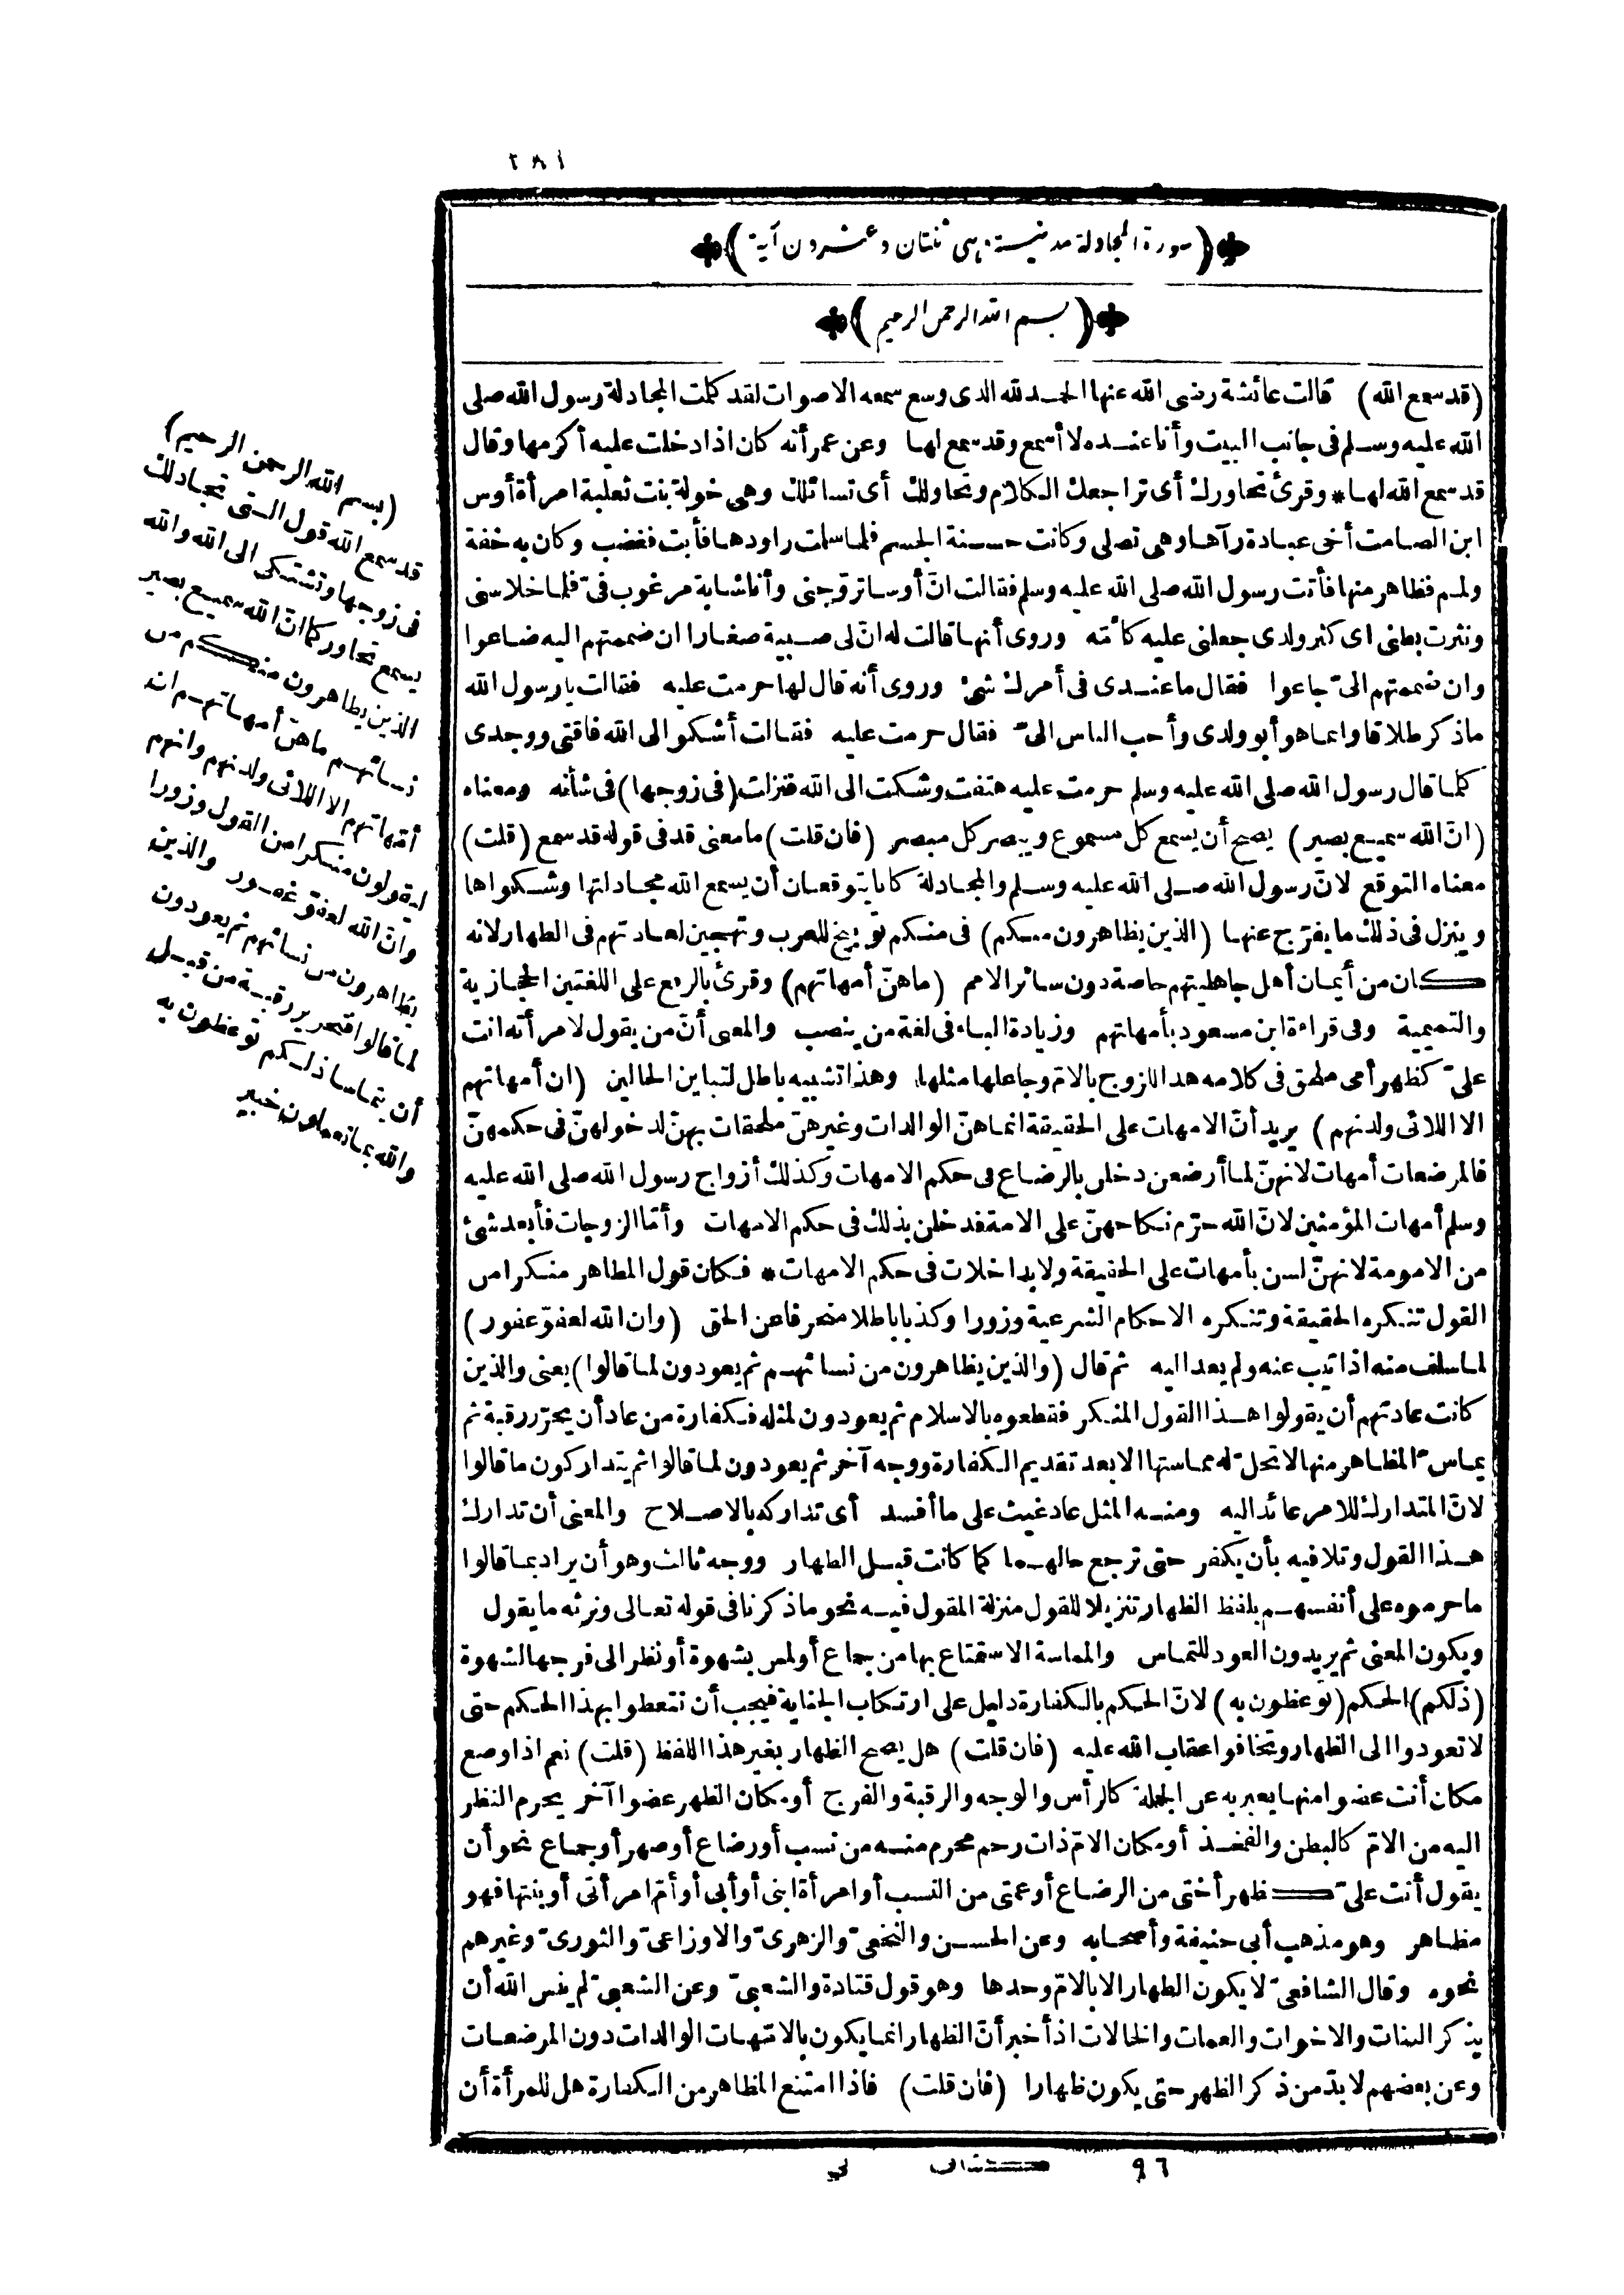 ٢٨١
﴿سورة المجادلة مدنية وهى ثنتان وعشرون آية﴾
﴿بسم الله الرحمن الرحيم﴾
(قد سمع الله) قالت عائشة رضى الله عنها الحمد لله الذى وسع سمعه الاصوات لقد كلمت المجادلة رسول الله صلى
الله عليه وسلم فى جانب البيت وأنا عنده لا أسمع وقد سمع لها وعن عمر أنه كان اذا دخلت عليه أكرمها وقال
قد سمع الله لها * وقرئ تحاورك أى تراجعك الكلام وتحاولك أى تسائلك وهى خولة بنت ثعلبة امرأة أوس
ابن الصامت أخى عبادة رآها وهى تصلى وكانت حسنة الجسم فلما سلمت راودها فأبت فغضب وكان به خفة
ولمم فظاهر منها فأتت رسول الله صلى الله عليه وسلم فقالت انّ أوسا تزوّجنى وأنا شابة مرغوب فىّ فلما خلا سنى
ونثرت بطنى اى كثر ولدى جعلنى عليه كأمّه وروى أنها قالت له انّ لى صبية صغارا ان ضممتهم اليه ضاعوا
وان ضممتهم الىّ جاعوا فقال ما عندى فى أمرك شئ وروى أنه قال لها حرمت عليه فقالت يا رسول الله
ما ذكر طلاقا وانما هو أبو ولدى وأحب الناس الىّ فقال حرمت عليه فقالت أشكو الى الله فاقتى ووجدى
كلما قال رسول الله صلى الله عليه وسلم حرمت عليه هتفت وشكت الى الله فنزلت (فى زوجها) فى شأنه ومعناه
(انّ الله سميع بصير) يصح أن يسمع كل مسموع ويبصر كل مبصر (فان قلت) ما معنى قد فى قوله قد سمع (قلت)
معناه التوقع لانّ رسول الله صلى الله عليه وسلم والمجادلة كانا يتوقعان أن يسمع الله مجادلتها وشكواها
وينزل فى ذلك ما يفرّج عنها (الذين يظاهرون منكم) فى منكم توبيخ للعرب وتهجين لعادتهم فى الظهار لانه
كان من أيمان أهل جاهليتهم خاصة دون سائر الامم (ما هنّ أمهاتهم) وقرئ بالرفع على اللغتين الحجازية
والتميمية وفى قراءة ابن مسعود بأمهاتهم وزيادة الباء فى لغة من ينصب والمعنى أنّ من يقول لامرأته انت
علىّ كظهر أمى ملحق فى كلامه هذا للزوج بالامّ وجاعلها مثلها وهذا تشبيه باطل لتباين الحالين (ان أمهاتهم
الا اللائى ولدنهم) يريد أنّ الامهات على الحقيقة انما هنّ الوالدات وغيرهنّ ملحقات بهنّ لدخولهنّ فى حكمهنّ
فالمرضعات أمهات لانهنّ لما أرضعن دخلن بالرضاع فى حكم الامهات وكذلك أزواج رسول الله صلى الله عليه
وسلم أمهات المؤمنين لانّ الله حرّم نكاحهنّ على الامة فدخلن بذلك فى حكم الامهات وأمّا الزوجات فأبعد شئ
من الامومة لانهنّ لسن بأمهات على الحقيقة ولا بداخلات فى حكم الامهات * فكان قول المظاهر منكرا من
القول تنكره الحقيقة وتنكره الاحكام الشرعية وزورا وكذبا باطلا منحرفا عن الحق (وان الله لعفوّ غفور)
لما سلف منه اذا تيب عنه ولم يعد اليه ثم قال (والذين يظاهرون من نسائهم ثم يعودون لما قالوا) يعنى والذين
كانت عادتهم أن يقولوا هذا القول المنكر فقطعوه بالاسلام ثم يعودون لمثله فكفارة من عاد أن يحرّر رقبة ثم
يماسّ المظاهر منها لا تحلّ له مماستها الا بعد تقديم الكفارة ووجه آخر ثم يعودون لما قالوا ثم يتداركون ما قالوا
لانّ المتدارك للامر عائد اليه ومنه المثل عاد غيث على ما أفسد أى تداركه بالاصلاح والمعنى أن تدارك
هذا القول وتلافيه بأن يكفر حتى ترجع حالهما كما كانت قبل الظهار ووجه ثالث وهو أن يراد بما قالوا
ما حرموه على أنفسهم بلفظ الظهار تنزيلا للقول منزلة المقول فيه نحو ما ذكرنا فى قوله تعالى ونرثه ما يقول
ويكون المعنى ثم يريدون العود للتماس والمماسة الاستمتاع بها من جماع أو لمس بشهوة أو نظر الى فرجها لشهوة
(ذلكم) الحكم (توعظون به) لانّ الحكم بالكفارة دليل على ارتكاب الجناية فيجب أن تتعظوا بهذا الحكم حتى
لا تعودوا الى الظهار وتخافوا عقاب الله عليه (فان قلت) هل يصح الظهار بغير هذا اللفظ (قلت) نعم اذا وضع
مكان أنت عضوا منها يعبر به عن الجملة كالرأس والوجه والرقبة والفرج أو مكان الظهر عضوا آخر يحرم النظر
اليه من الامّ كالبطن والفخذ أو مكان الامّ ذات رحم محرم منه من نسب أو رضاع أو صهر أو جماع نحو أن
يقول أنت علىّ كظهر أختى من الرضاع أو عمتى من النسب أو امرأة ابنى أو أبى أو أمّ امرأتى أو بنتها فهو
مظاهر وهو مذهب أبى حنيفة وأصحابه وعن الحسن والنخعىّ والزهرىّ والاوزاعىّ والثورىّ وغيرهم
نحوه وقال الشافعىّ لا يكون الظهار الا بالامّ وحدها وهو قول قتادة والشعبىّ وعن الشعبىّ لم ينس الله أن
يذكر البنات والاخوات والعمات والخالات اذ أخبر أنّ الظهار انما يكون بالامّهات الوالدات دون المرضعات
وعن بعضهم لا بدّ من ذكر الظهر حتى يكون ظهارا (فان قلت) فاذا امتنع المظاهر من الكفارة هل للمرأة أن
(بسم الله الرحمن الرحيم)
قد سمع الله قول التى تجادلك
فى زوجها وتشتكى الى الله والله
يسمع تحاوركما انّ الله سميع بصير
الذين يظاهرون منكم من
نسائهم ما هنّ أمهاتهم ان
أمّهاتهم الا اللائى ولدنهم وانهم
ليقولون منكرا من القول وزورا
وانّ الله لعفوّ غفور والذين
يظاهرون من نسائهم ثم يعودون
لما قالوا فتحرير رقبة من قبل
أن يتماسا ذلكم توعظون به
والله بما تعملون خبير
٩٦ كشاف نى